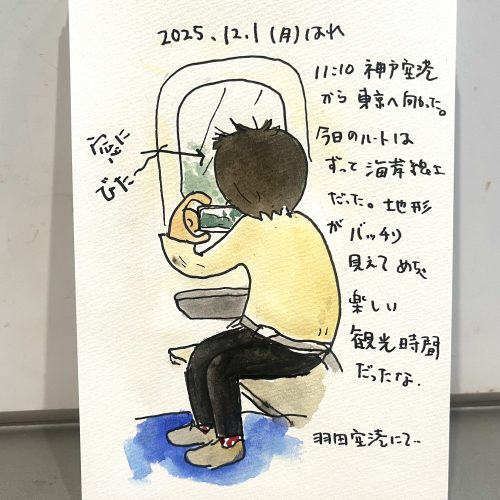 2025.12.1 (月) はれ
11:10 神戸空港
から 東京へ向かった。
今日のルートは
ずって 海岸線上
だった。地形
が バッチリ
見えて めちゃ
楽しい
観光時間
だったな.
窓に
びたー
羽田空港にて..